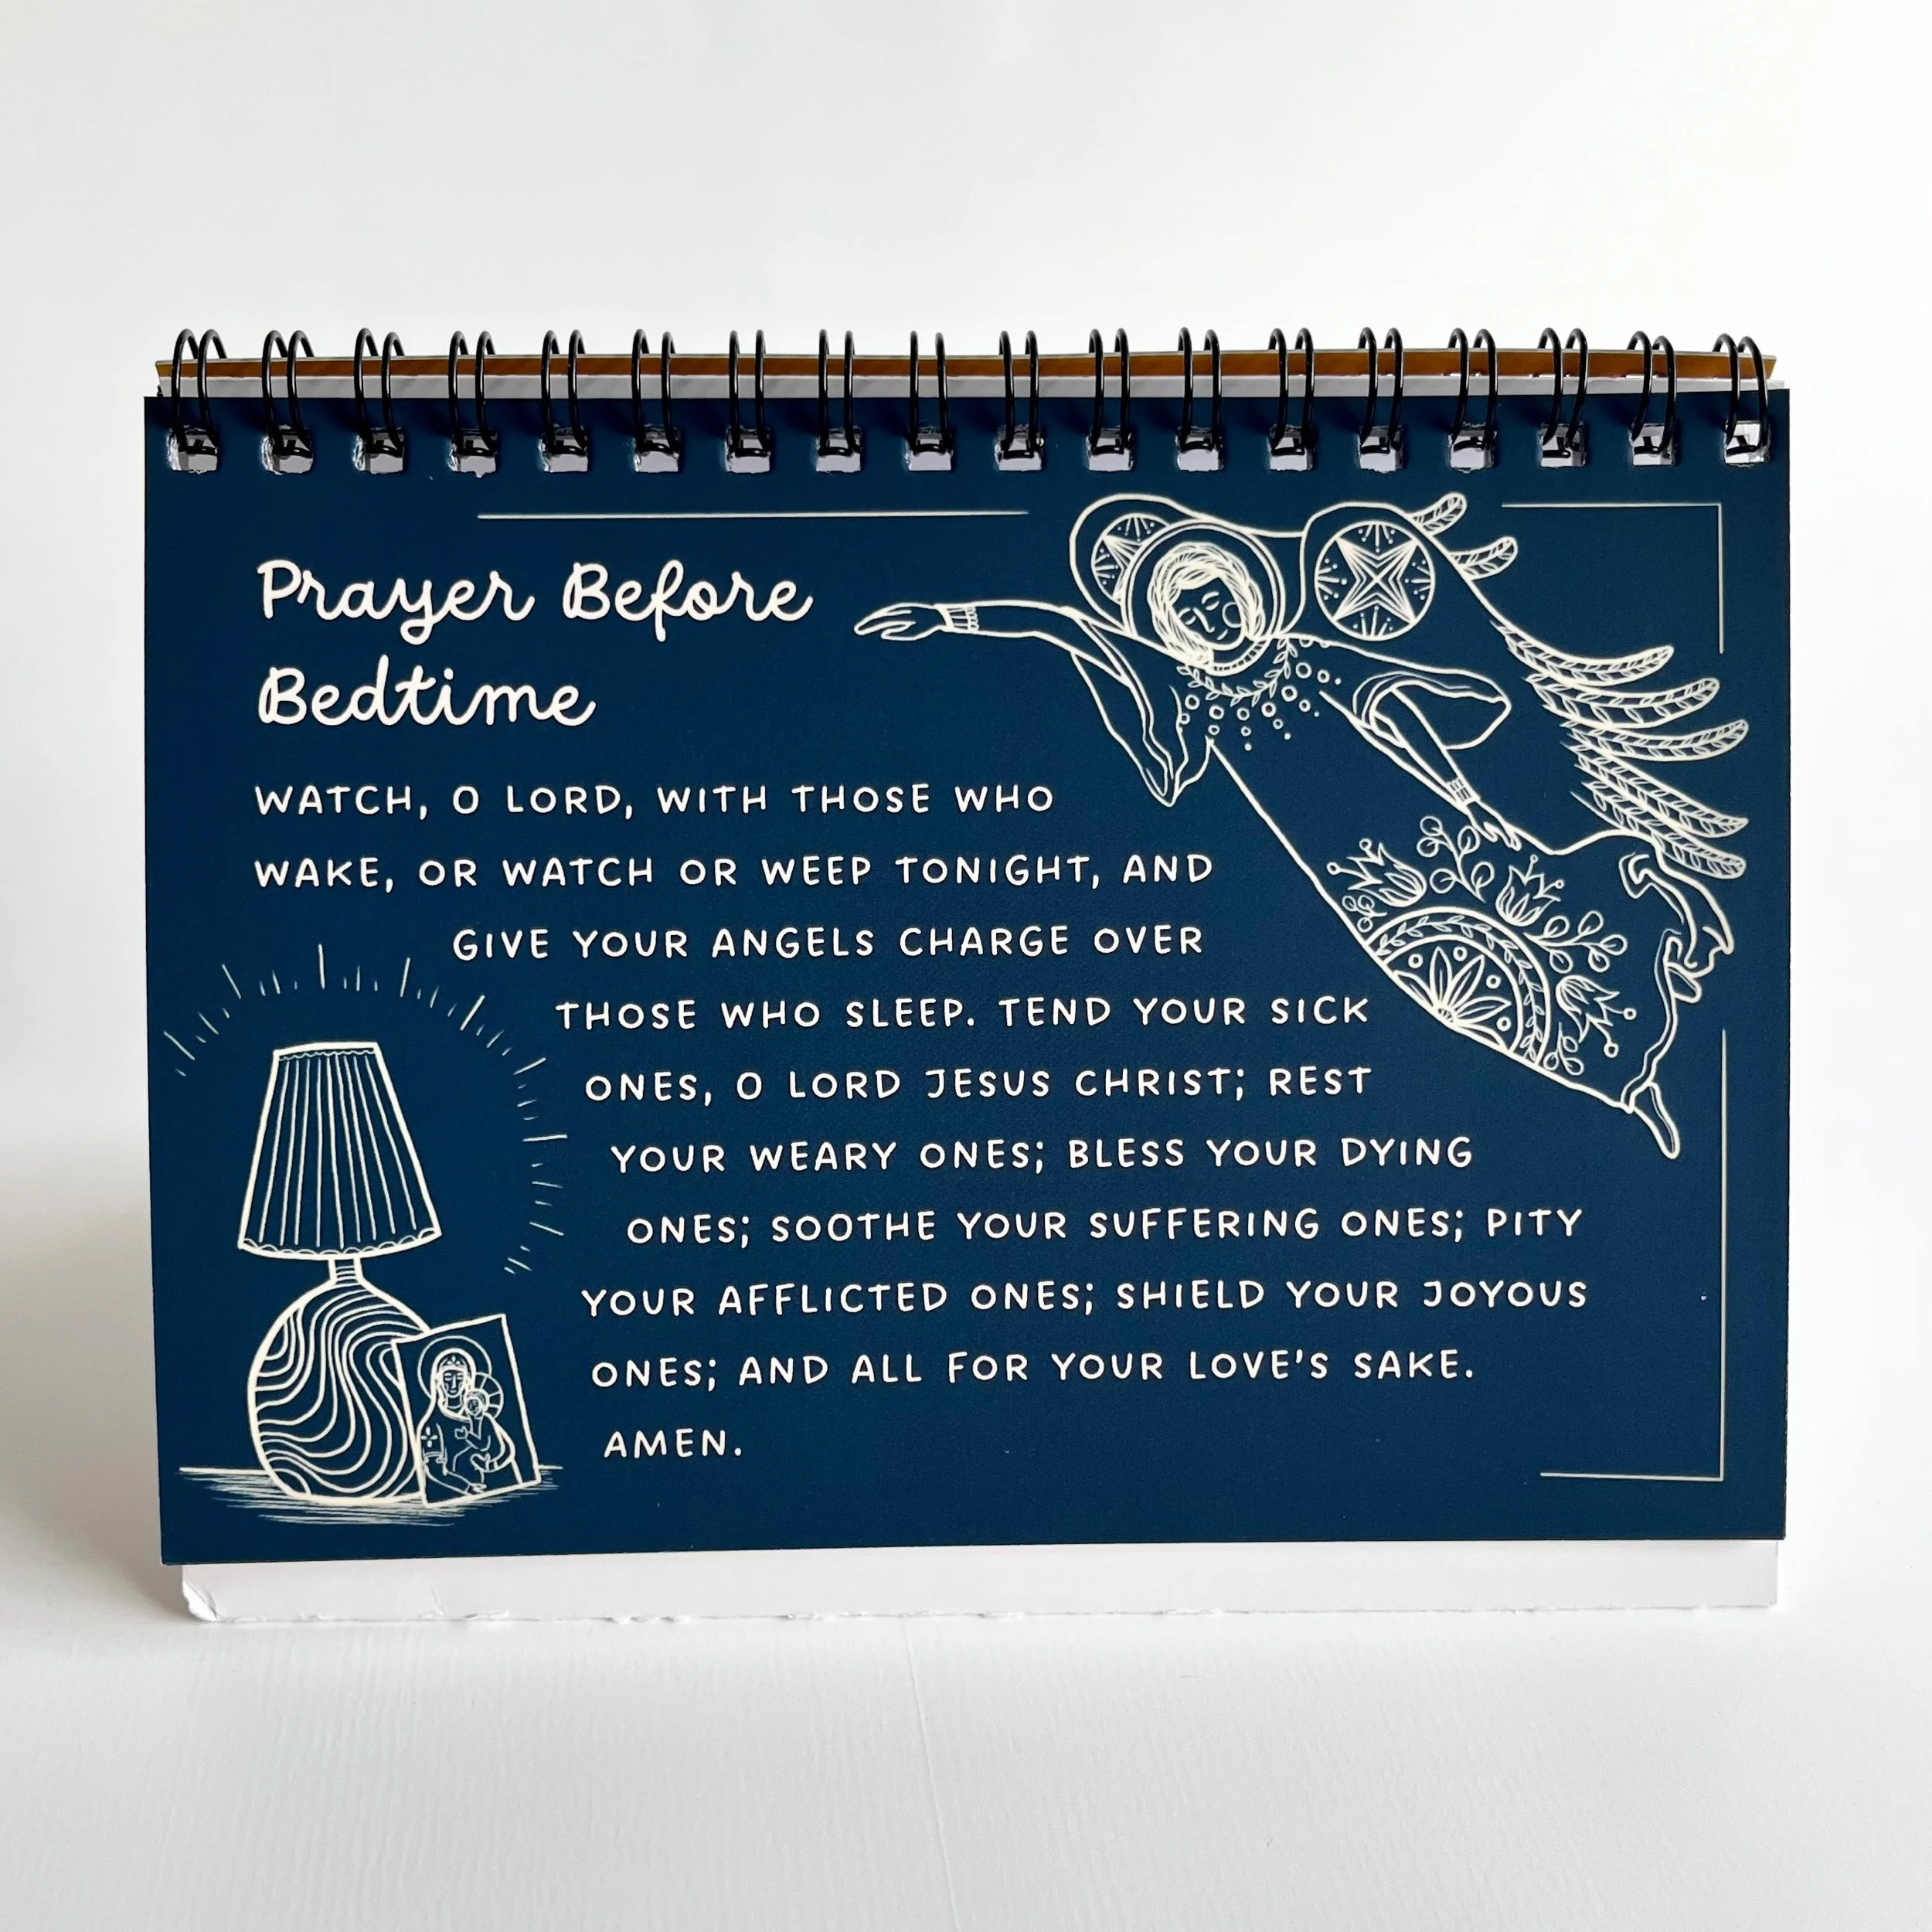 Prayer Before
Bedtime
WATCH, O LORD, WITH THOSE WHO
WAKE, OR WATCH OR WEEP TONIGHT, AND
GIVE YOUR ANGELS CHARGE OVER
THOSE WHO SLEEP. TEND YOUR SICK
ONES, O LORD JESUS CHRIST; REST
YOUR WEARY ONES; BLESS YOUR DYING
ONES; SOOTHE YOUR SUFFERING ONES; PITY
YOUR AFFLICTED ONES; SHIELD YOUR JOYOUS
ONES; AND ALL FOR YOUR LOVE'S SAKE.
AMEN.